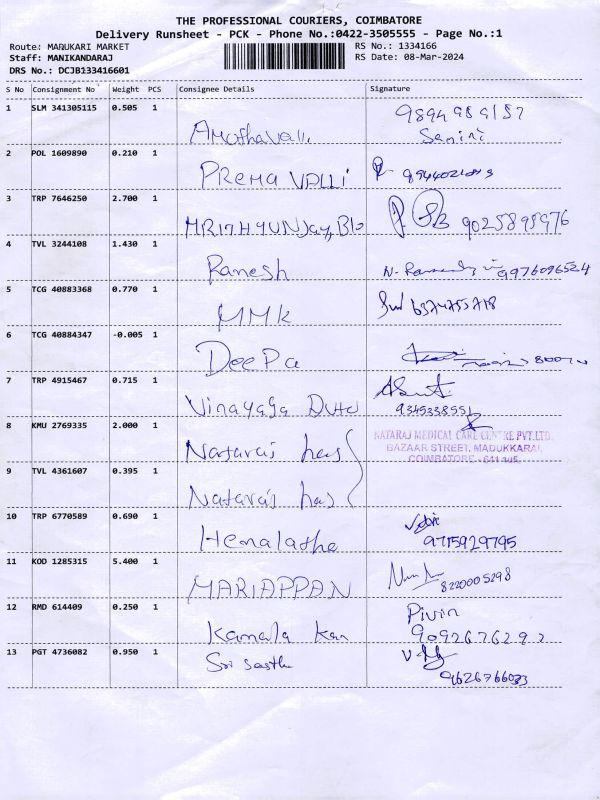 THE PROFESSIONAL COURIERS, COIMBATORE
Delivery Runsheet - PCK - Phone No.:0422-3505555 - Page No.:1
Route: MADUKARI MARKET RS No.: 1334166
Staff: MANIKANDARAJ RS Date: 08-Mar-2024
DRS No.: DCJB133416601
S No Consignment No Weight PCS Consignee Details Signature
1 SLM 341305115 0.505 1
2 POL 1609890 0.210 1 PREMA VALLI
3 TRP 7646250 2.700 1 9025895976
4 TVL 3244108 1.430 1 Ramesh 9976096524
5 TCG 40883368 0.770 1 MMK
6 TCG 40884347 -0.005 1 DeePa
7 TRP 4915467 0.715 1 Vinayaga
9345338551
8 KMU 2769335 2.000 1 Nataraj has
NATARAJ MEDICAL CARE CENTRE PVT.LTD.
BAZAAR STREET, MADUKKARAI,
COIMBATORE -
9 TVL 4361607 0.395 1 Nataraj has
10 TRP 6770589 0.690 1 Hemalatha
9715929795
11 KOD 1285315 5.400 1 MARIAPPAN 8220005298
12 RMD 614409 0.250 1 Kamala Pivin
9092676292
13 PGT 4736082 0.950 1 Sri sastha